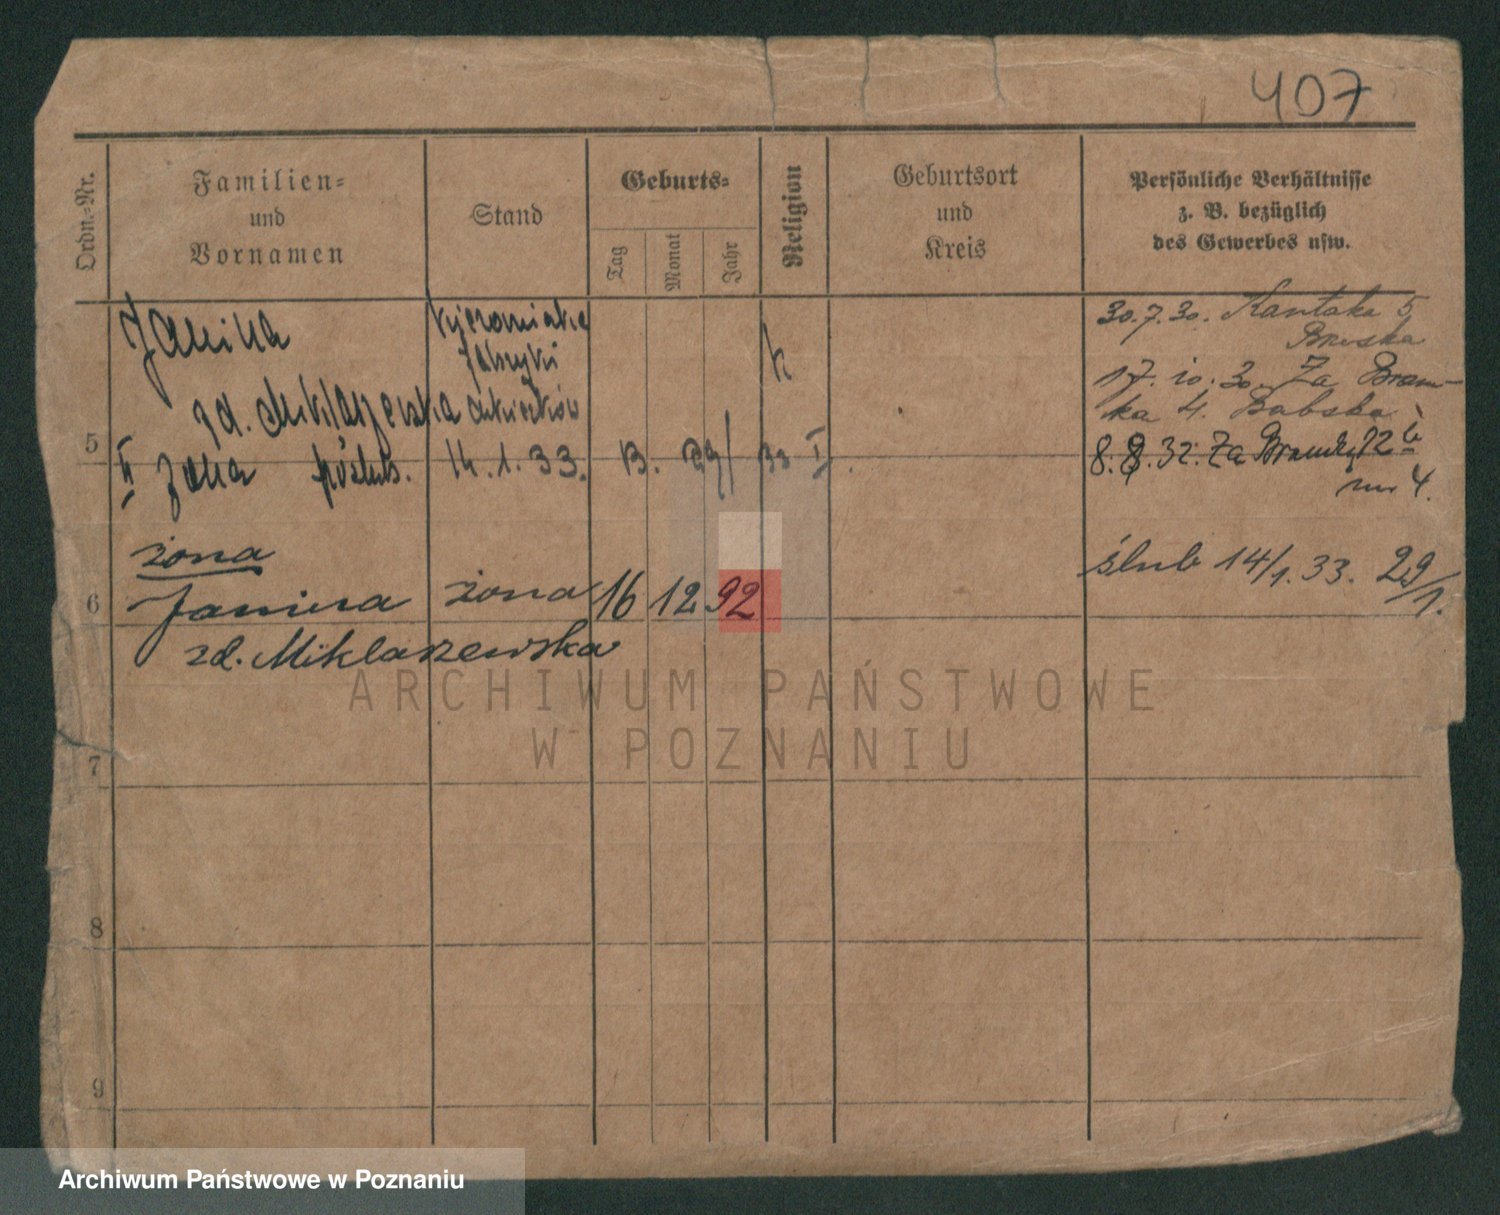 407
Ordn.-Nr.
Familien-
und
Vornamen
Stand
Geburts-
Tag
Monat
Jahr
Religion
Geburtsort
und
Kreis
Persönliche Verhältnisse
z. B. bezüglich
des Gewerbes usw.
Janina
fabryki
k
30.7.30. Kantaka 5
17.10.30. Za Bram-
ką 4. Babska
zd. Miklaszewska
5
II żona poślub. 14.1.33. B. 29/ 33 I.
8.8.32. Za Bramką 12b
nr 4.
żona
ślub 14/1.33. 29/1.
6
Janina żona 16 12 92
zd. Miklaszewska
ARCHIWUM PAŃSTWOWE
W POZNANIU
7
8
9
Archiwum Państwowe w Poznaniu